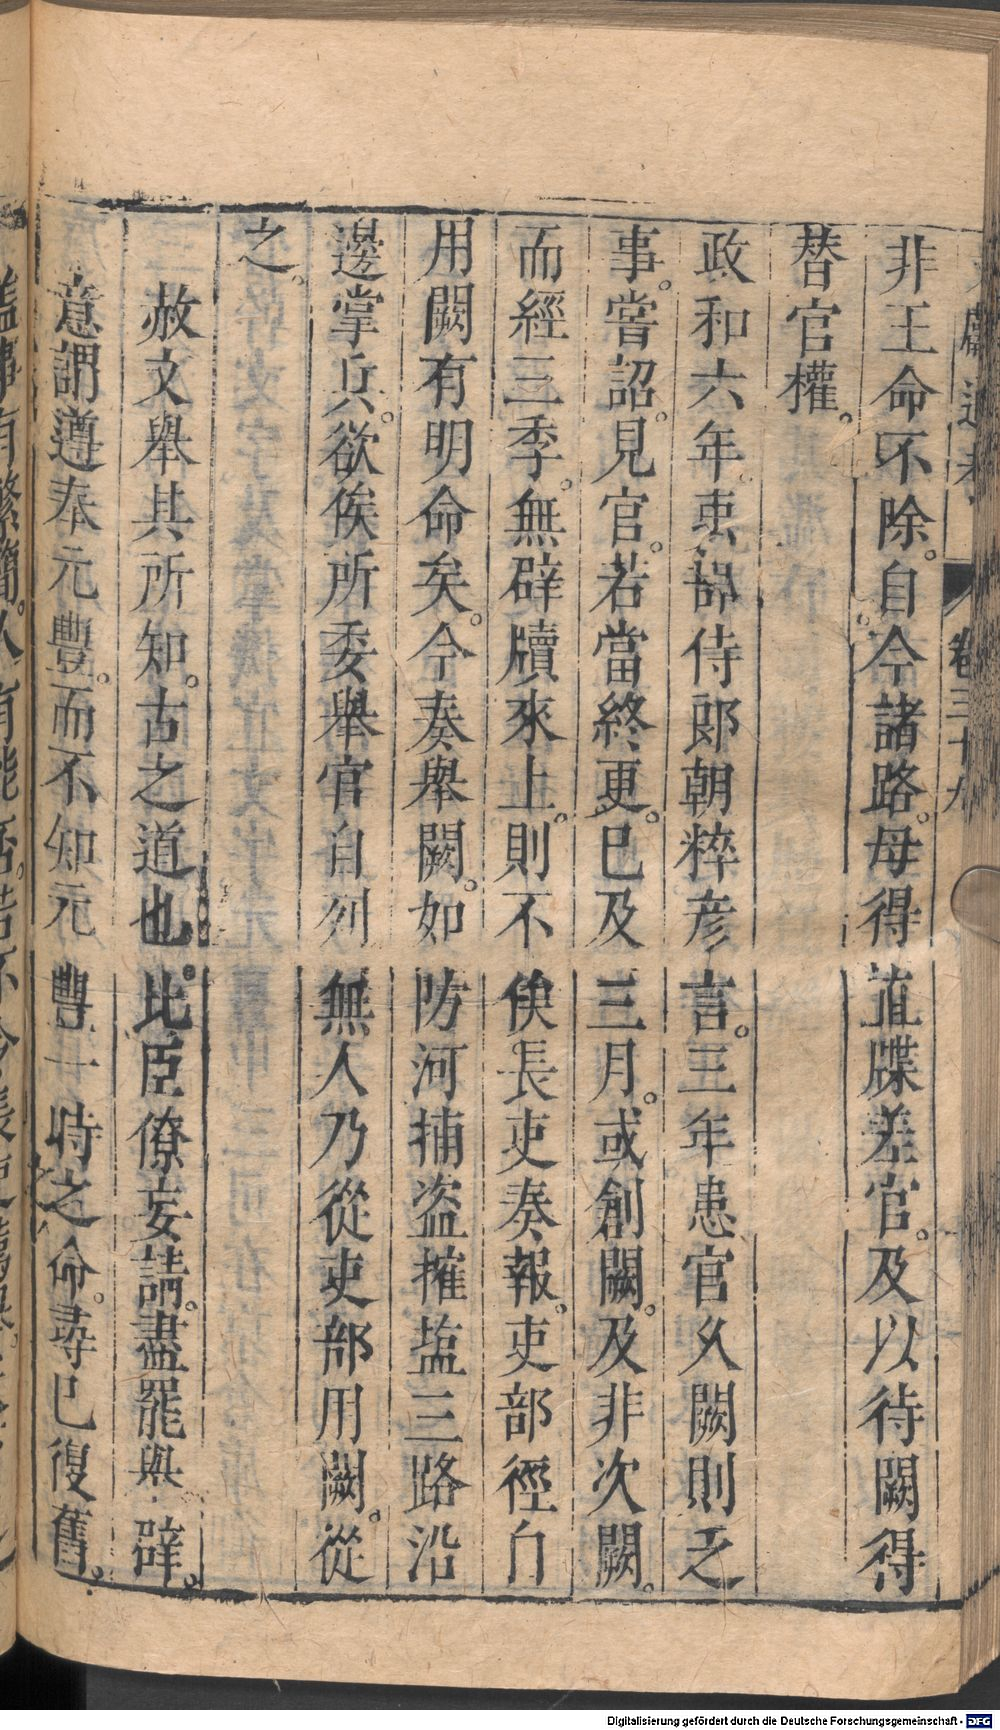 非王命不除。自今諸路。毋得直牒差官。及以待闕得
替官權。
政和六年。吏部侍郎韓粹彥言。三年患官久闕則乏
事。嘗詔。見官。若當終更。已及三月。或創闕。及非次闕。
而經三季。無辟牘來上。則不俟長吏奏報。吏部徑自
用闕有明命矣。今奏舉闕。如防河捕盜搉盐三路沿
邊掌兵。欲俟所委舉官自列無人乃從吏部用闕。從
之。
赦文舉其所知。古之道也。比臣僚妄請。盡罷與辟。
意謂遵奉元豐。而不知元豐一時之命。尋已復舊。
卷三十九
Digitalisierung gefördert durch die Deutsche Forschungsgemeinschaft - DFG